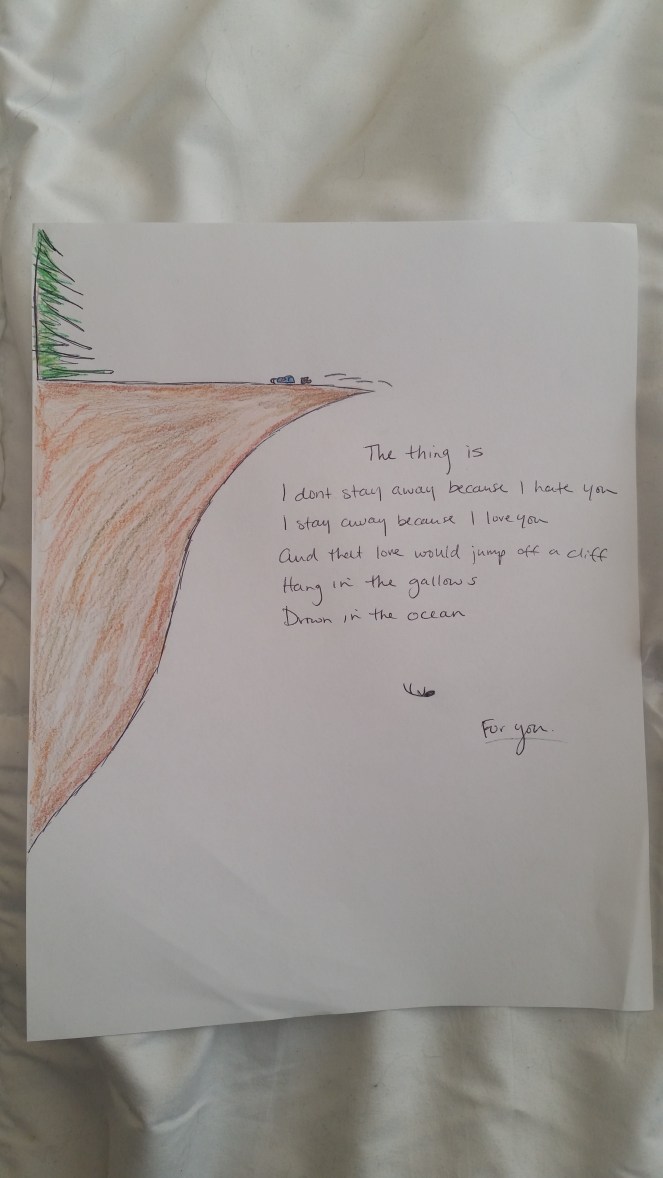 The thing is
I dont stay away because I hate you
I stay away because I love you
And that love would jump off a cliff
Hang in the gallows
Drown in the ocean
For you.